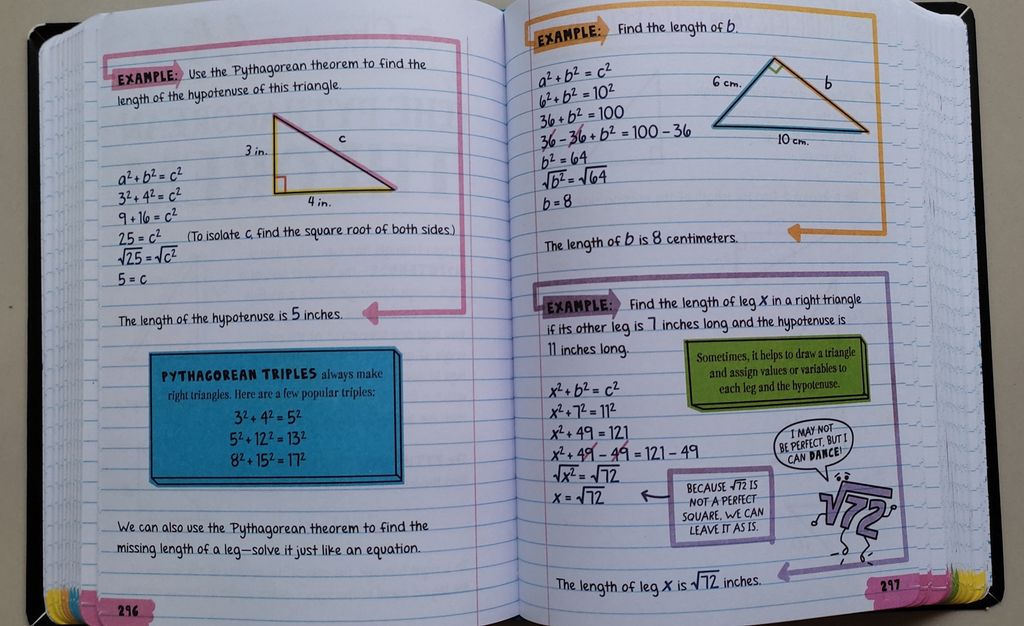 EXAMPLE: Use the Pythagorean theorem to find the
length of the hypotenuse of this triangle.
3 in.
c
4 in.
a² + b² = c²
3² + 4² = c²
9 + 16 = c²
25 = c² (To isolate c, find the square root of both sides.)
√25 = √c²
5 = c
The length of the hypotenuse is 5 inches.
PYTHAGOREAN TRIPLES always make
right triangles. Here are a few popular triples:
3² + 4² = 5²
5² + 12² = 13²
8² + 15² = 17²
We can also use the Pythagorean theorem to find the
missing length of a leg—solve it just like an equation.
296
EXAMPLE: Find the length of b.
a² + b² = c²
6² + b² = 10²
36 + b² = 100
36 - 36 + b² = 100 - 36
b² = 64
√b² = √64
b = 8
6 cm.
b
10 cm.
The length of b is 8 centimeters.
EXAMPLE: Find the length of leg x in a right triangle
if its other leg is 7 inches long and the hypotenuse is
11 inches long.
Sometimes, it helps to draw a triangle
and assign values or variables to
each leg and the hypotenuse.
x² + b² = c²
x² + 7² = 11²
x² + 49 = 121
x² + 49 - 49 = 121 - 49
√x² = √72
x = √72
BECAUSE √72 IS
NOT A PERFECT
SQUARE, WE CAN
LEAVE IT AS IS.
I MAY NOT
BE PERFECT, BUT I
CAN DANCE!
√72
The length of leg x is √72 inches.
297